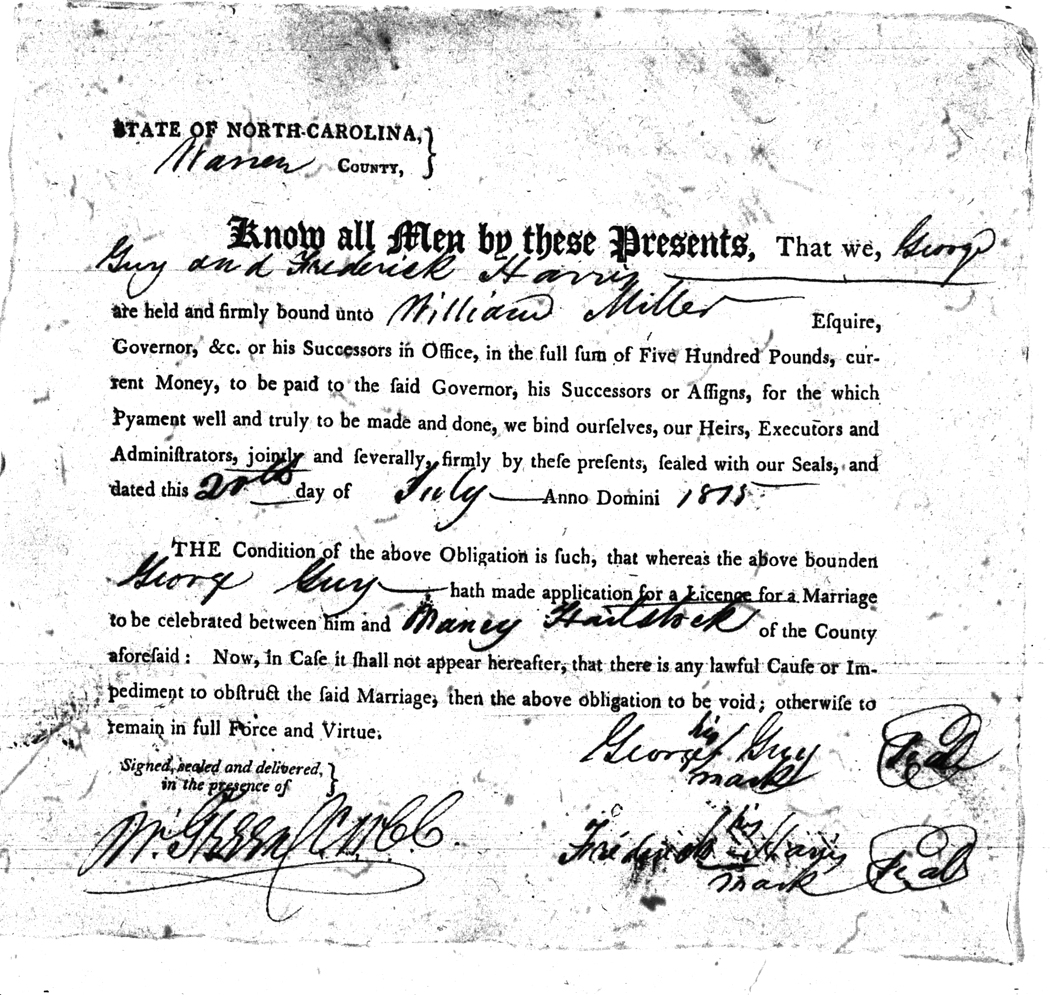 STATE OF NORTH-CAROLINA,
Warren County,
Know all Men by these Presents, That we, George
Guy and Frederick Harris
are held and firmly bound unto William Miller Eſquire,
Governor, &c. or his Succeſſors in Office, in the full ſum of Five Hundred Pounds, cur-
rent Money, to be paid to the ſaid Governor, his Succeſſors or Aſſigns, for the which
Pyament well and truly to be made and done, we bind ourſelves, our Heirs, Executors and
Adminiſtrators, jointly and ſeverally, firmly by theſe preſents, ſealed with our Seals, and
dated this 20th day of July Anno Domini 1815
THE Condition of the above Obligation is ſuch, that whereas the above bounden
George Guy hath made application for a Licence for a Marriage
to be celebrated between him and Nancy Hailstock of the County
aforeſaid: Now, in Caſe it ſhall not appear hereafter, that there is any lawful Cauſe or Im-
pediment to obſtruct the ſaid Marriage, then the above obligation to be void; otherwiſe to
remain in full Force and Virtue.
his
George Guy Seal
mark
Signed, sealed and delivered,
in the presence of
Wm. Green C.W.C.C.
his
Frederick Harris Seal
mark